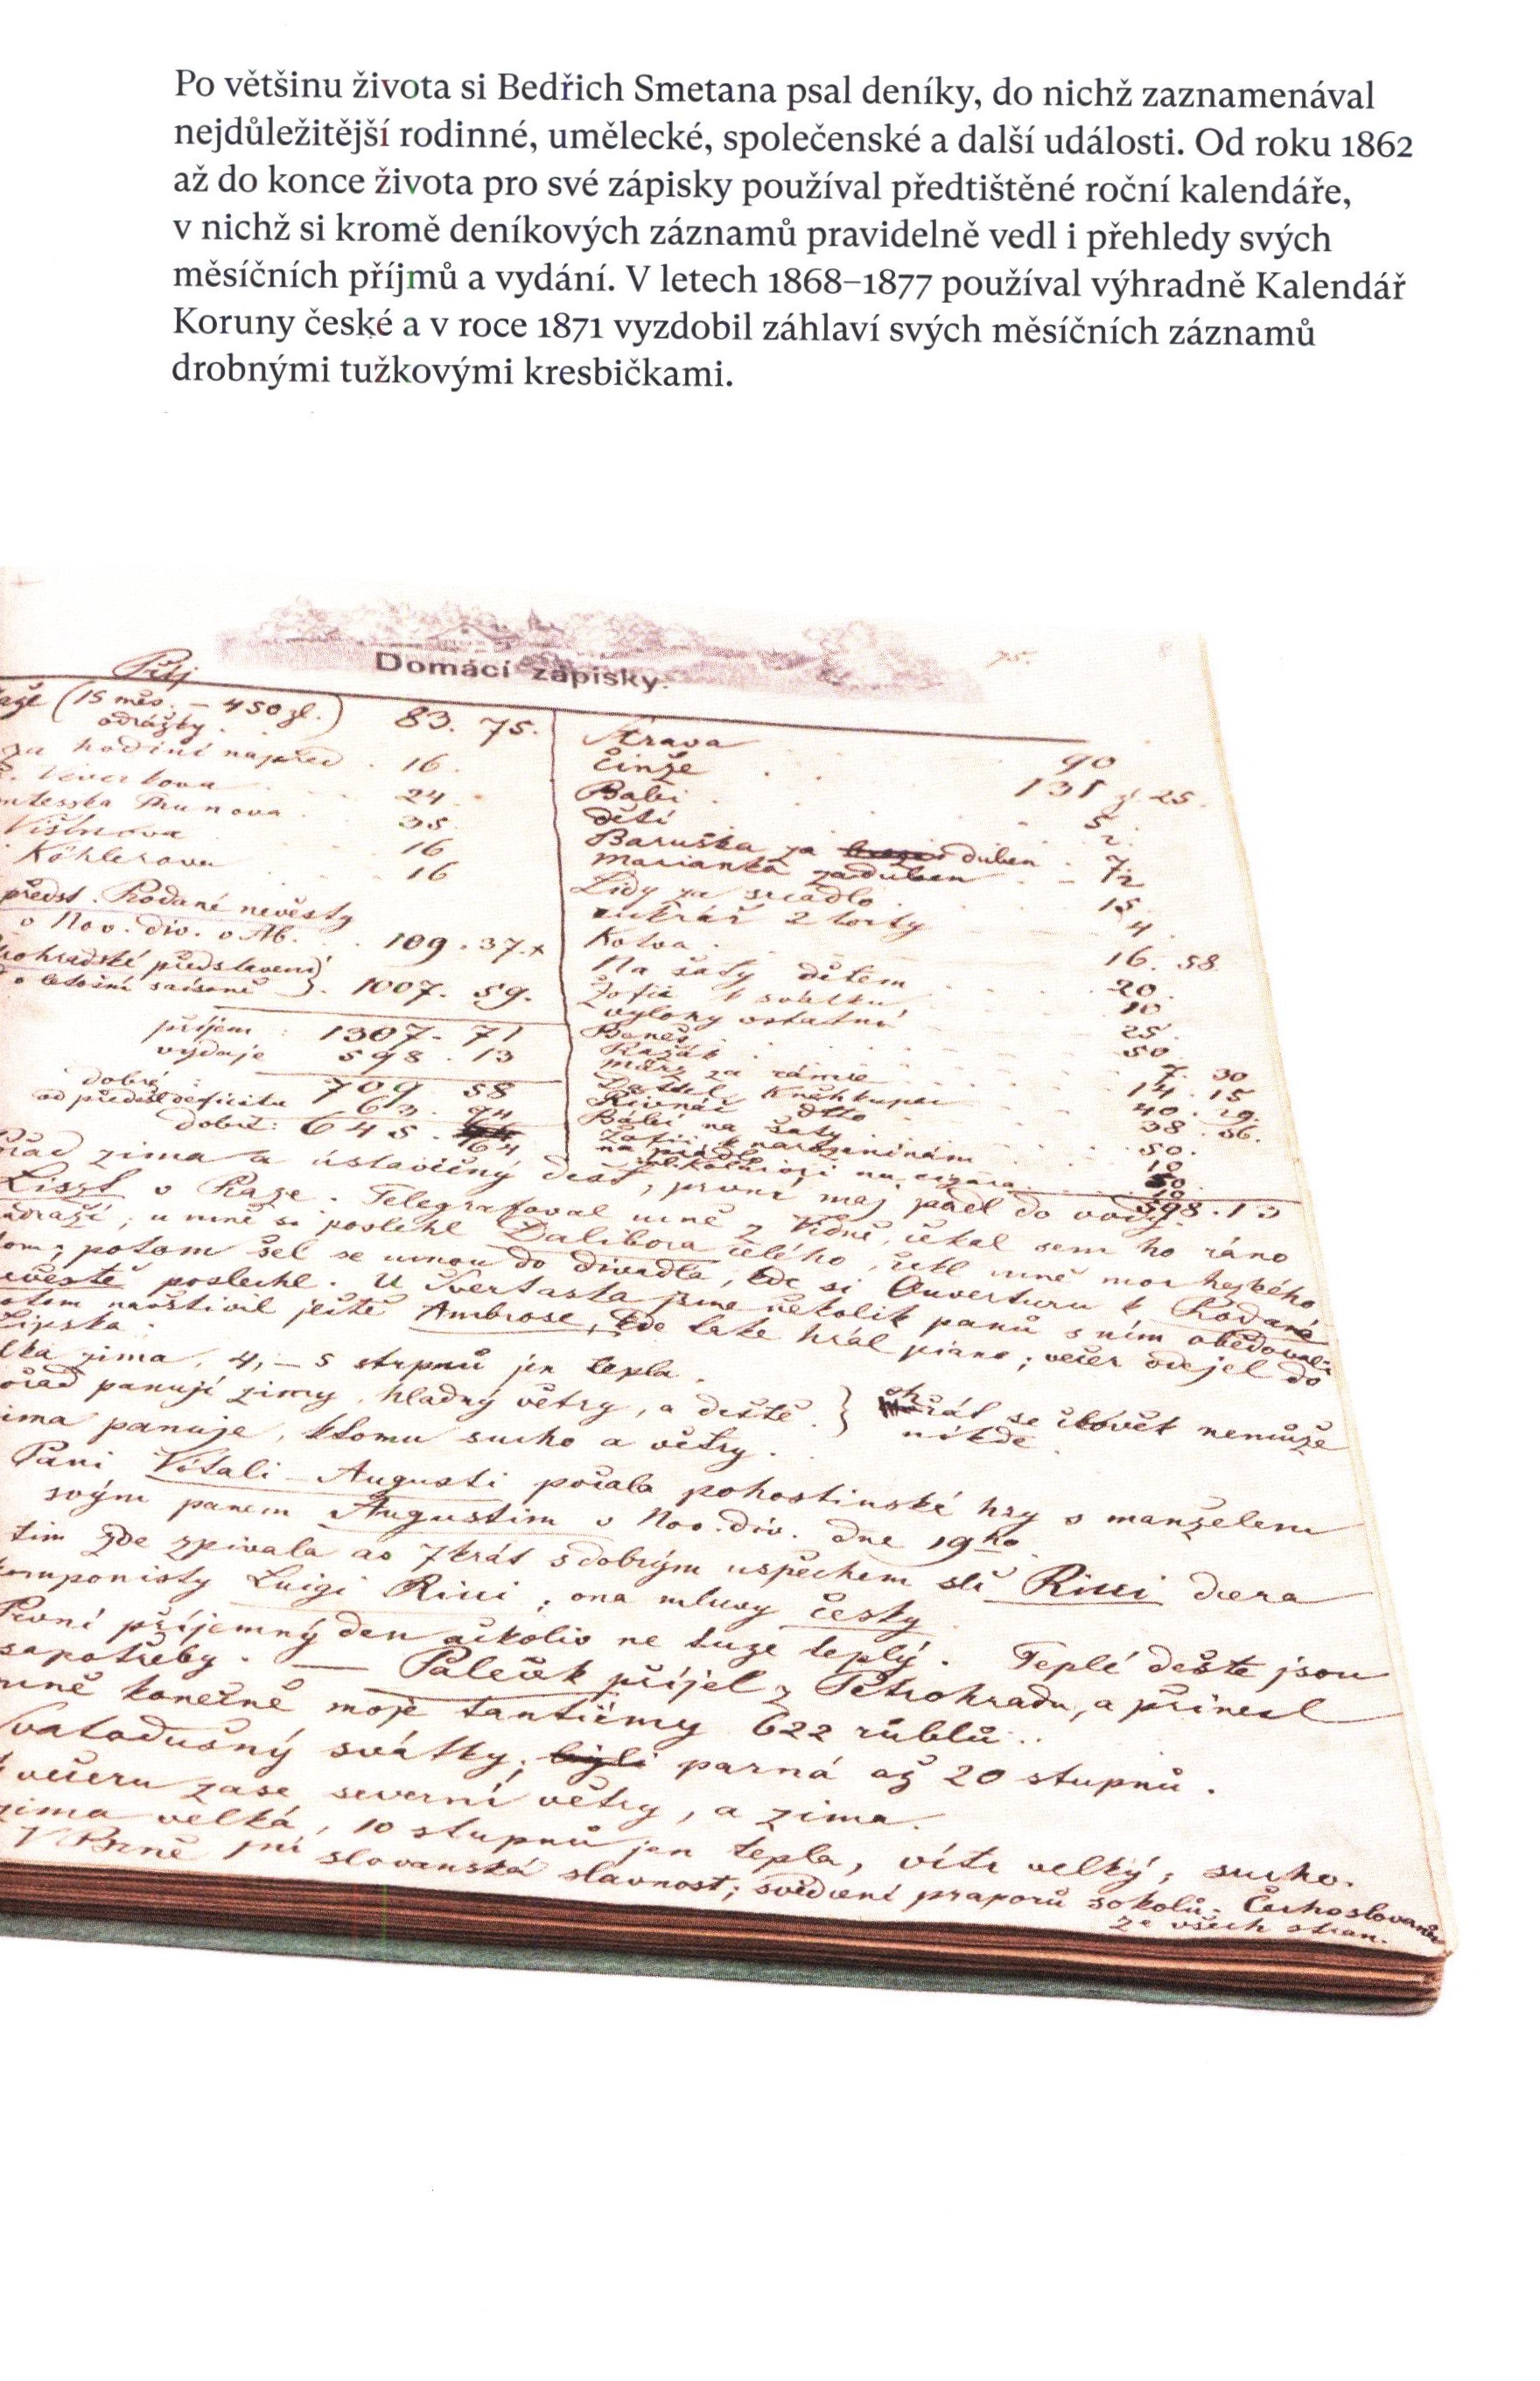 Po většinu života si Bedřich Smetana psal deníky, do nichž zaznamenával
nejdůležitější rodinné, umělecké, společenské a další události. Od roku 1862
až do konce života pro své zápisky používal předtištěné roční kalendáře,
v nichž si kromě deníkových záznamů pravidelně vedl i přehledy svých
měsíčních příjmů a vydání. V letech 1868–1877 používal výhradně Kalendář
Koruny české a v roce 1871 vyzdobil záhlaví svých měsíčních záznamů
drobnými tužkovými kresbičkami.
75.
Domácí zápisky.
(15 měs. – 450 zl.) 83. 75.
odrážky.
za hodiní napřed . 16.
24
35.
16
Köhlerova 16
předst. Prodané nevěsty
v Nov. div. v Ab. . . 109. 37. x
představení
o letošní saisoně . 1007. 59.
příjem : 1307. 71
výdaje 598. 13
709 58
63. 94
dobré: 645. 64
Strava 90
činže 131 zl. 25.
Babi . 5
děti 2.
Baruška za duben . 7
Marianka za duben 7
Lidy za srcadlo 15.
cukrář 2 torty 4.
Kotva 16. 58
Na šaty dětem 20.
Žofii k svátku 10
výlohy ostatní 25
Beneš 50
za rámce 7. 30
kněhkupec 14. 15
Řivnáč dtto 40. 29.
Bábi na šaty 38. 56.
Žofii k narozeninám 50.
10
598. 13
zima a ustavičný dešť, první máj padl do vody.
Liszt v Praze. Telegrafoval mně z Vídně, čekal sem ho ráno
u mně si poslechl Dalibora celého, řekl mně moc hezkého
potom šel se mnou do divadla, kde si Ouverturu k Prodané
nevěstě poslechl. U jsme několik panů s ním obědovali
navštívil ještě Ambrose, kde také hrál piano; večer odejel do
Lipska.
zima, 4, – 5 stupnů jen tepla.
panují zimy, hladný větry, a deště. } se člověk nemůže
nikde
zima panuje, ktomu sucho a větry.
Paní Vitali – Augusti počala pohostinské hry s manželem
svým panem Augustim v Nov. div. dne 19ho
zde zpívala as 7krát s dobrým uspěchem slč Ricci dcera
komponisty Luigi Ricci; ona mluvy česky
První příjemný den ačkoliv ne tuze teplý. Teplé deště jsou
zapotřeby. — Paleček přijel z Petrohradu, a přinesl
mně konečně moje tantiémy 622 rublů..
Svatodušný svátky, parná až 20 stupnů.
k večeru zase severní větry, a zima.
zima velká, 10 stupnů jen tepla, vítr velký, sucho.
V Brně slovanská slavnost; svěcení praporů sokolů, Čechoslovanů
ze všech stran.